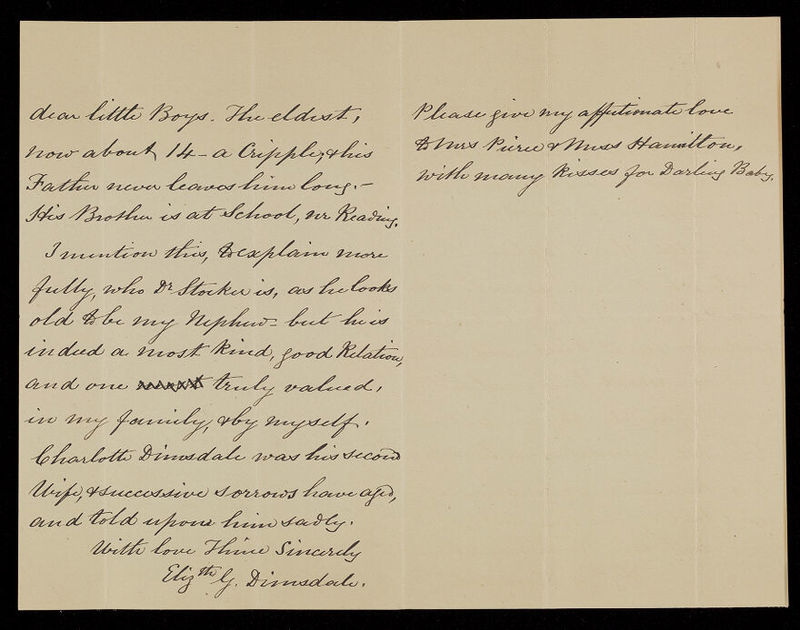 dear little Boys. The eldest,
now about 14 - a Cripple, & his
Father never leaves him long. -
His Brother is at School, nr Reading.
I mention this, to explain more
fully, who Dr Stocker is, as he looks
old to be my Nephew - but he is
indeed a most kind, good Relation,
and one truly valued,
in my family, & by myself.
Charlotte Dimsdale was his second
Wife, & successive sorrows have aged,
and told upon him sadly.
With love Thine Sincerely
Elizth G. Dimsdale.
Please give my affectionate love
to Mrs Pierce & Miss Hamilton,
with many kisses for Darling Baby.